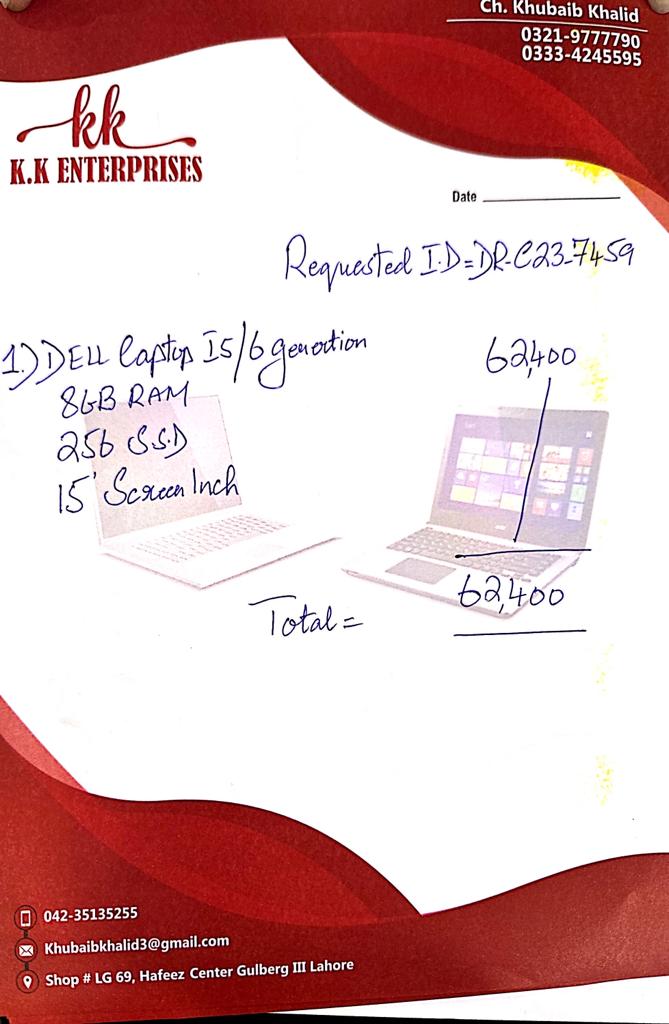 Ch. Khubaib Khalid
0321-9777790
0333-4245595
kk
K.K ENTERPRISES
Date
Requested I.D=DR-C23-7459
1.) DELL laptop I5/6 generation 62,400
8GB RAM
256 S.S.D
15" Screen Inch
Total = 62,400
042-35135255
Khubaibkhalid3@gmail.com
Shop # LG 69, Hafeez Center Gulberg III Lahore